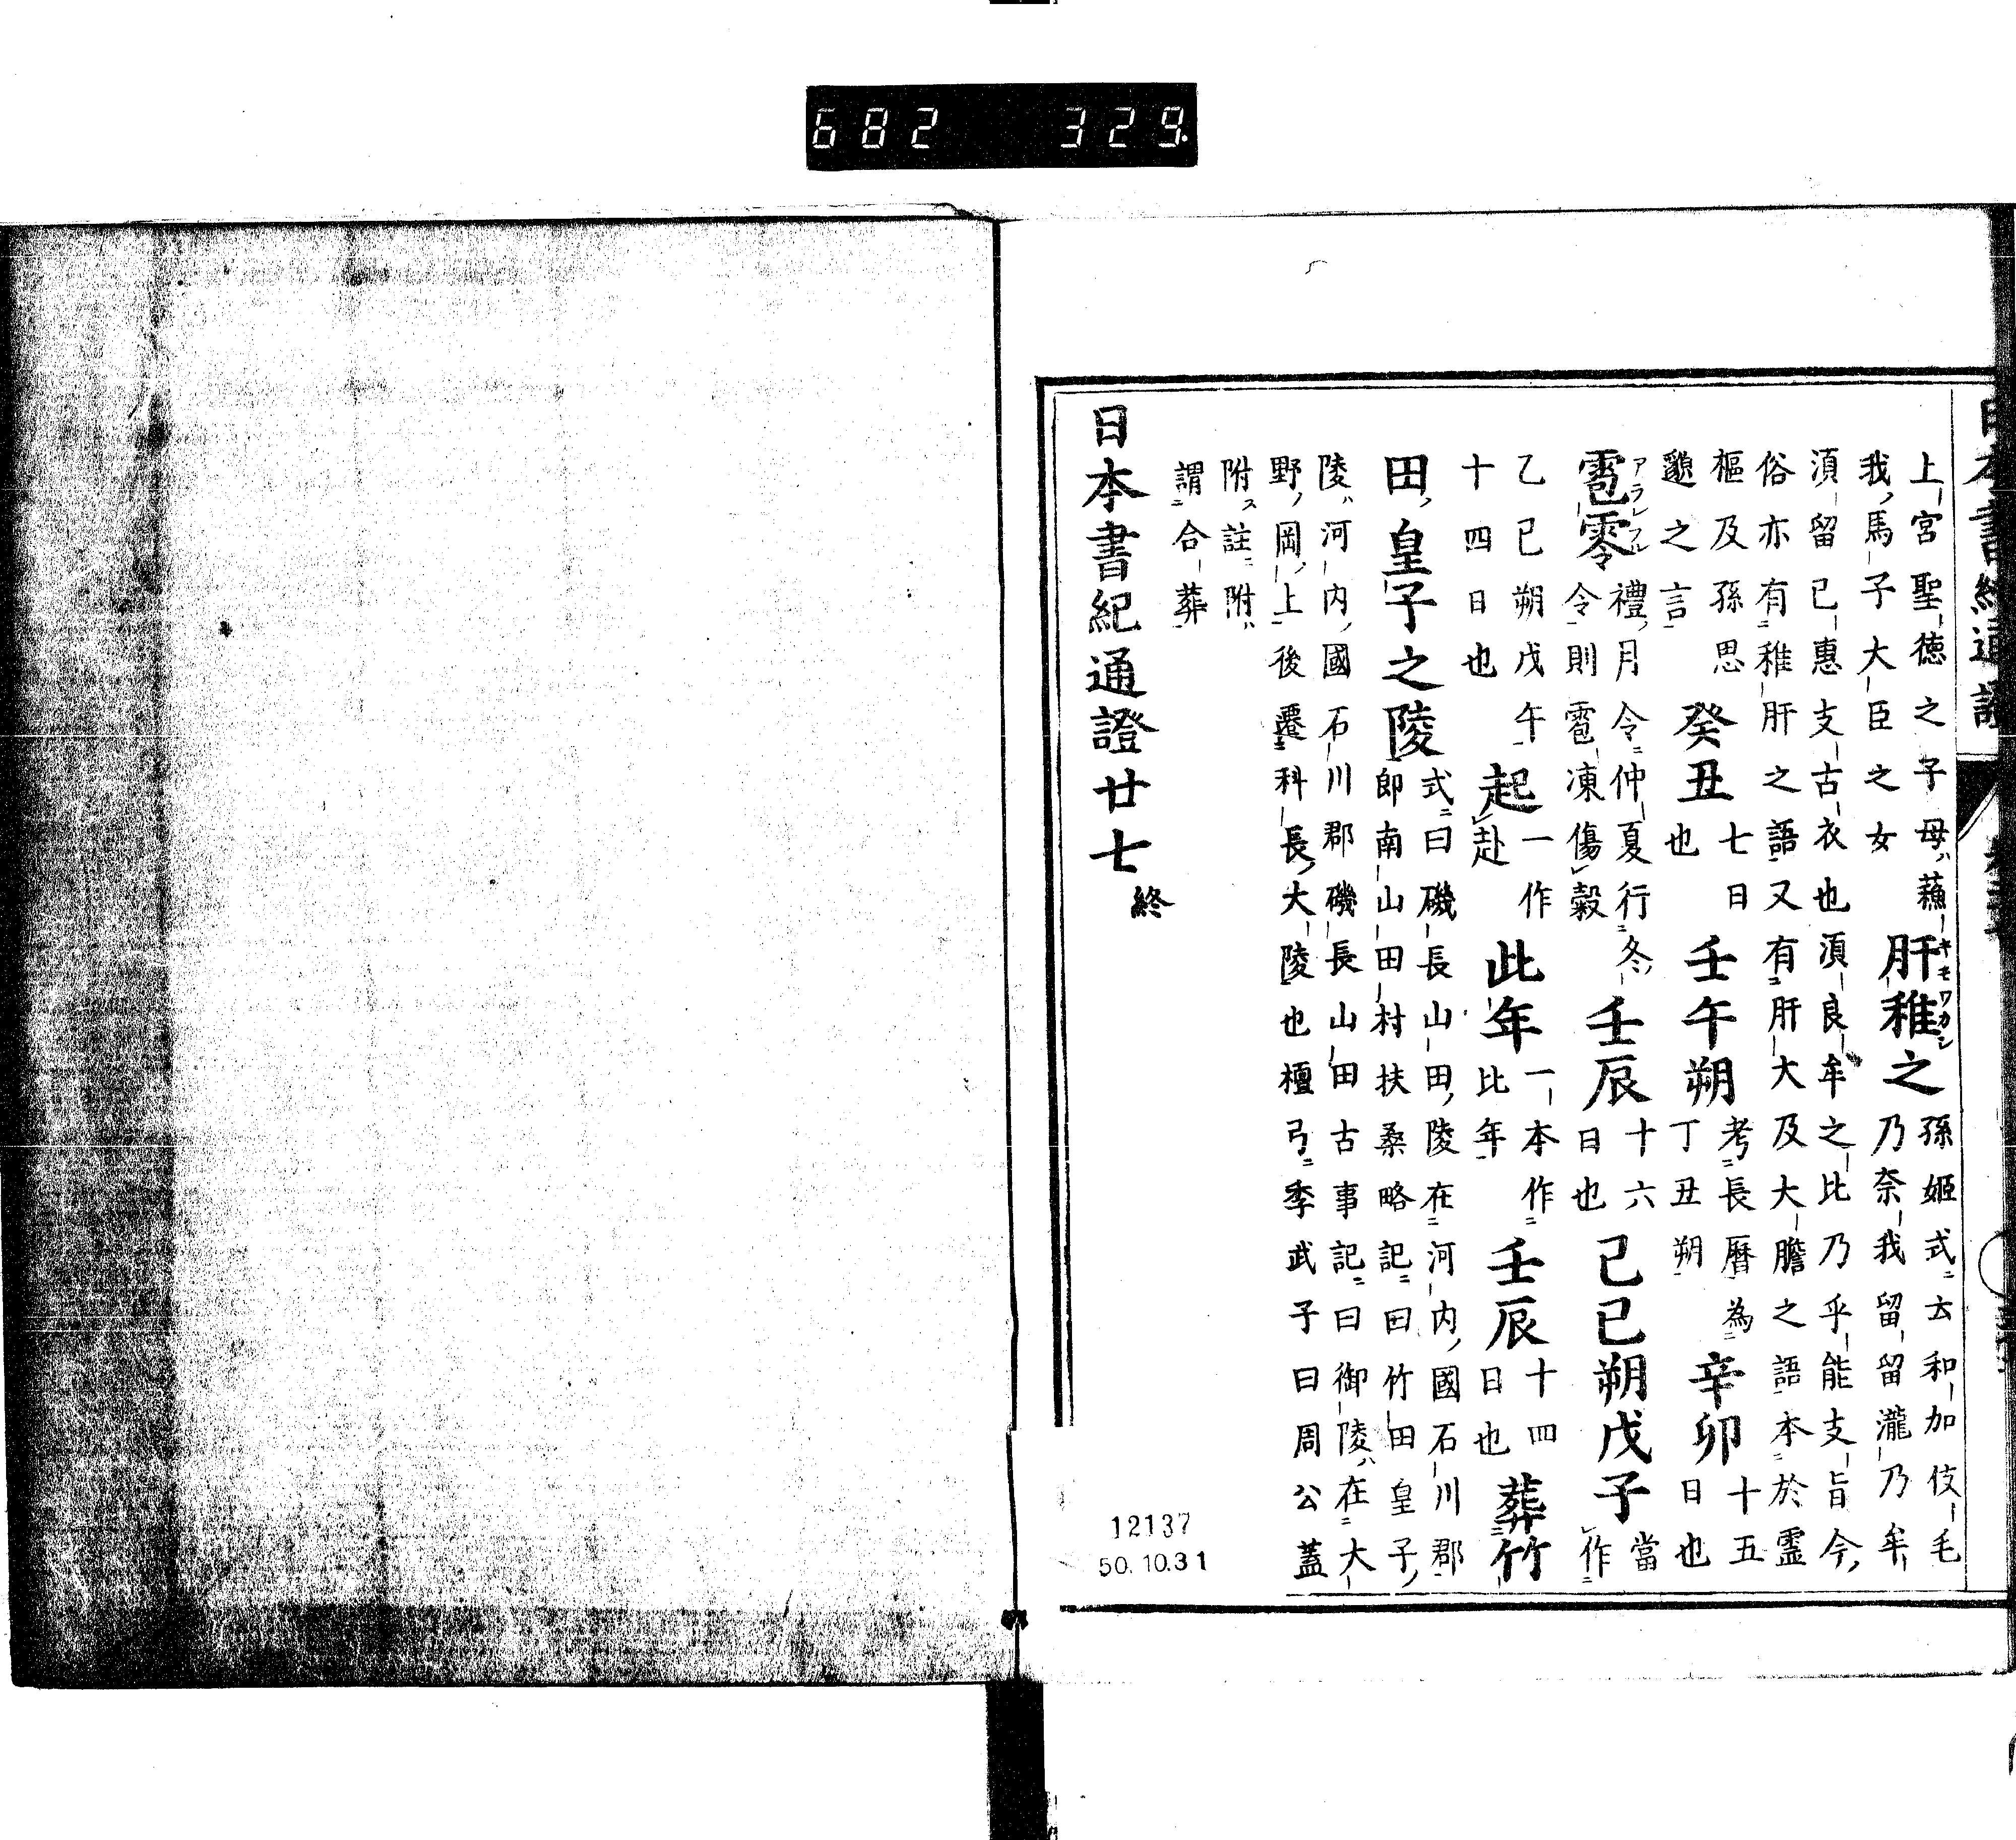 日本書紀通證
上宮聖徳之子母ハ蘓
我馬子大臣之女
肝稚之
キモワカシ
孫姬式ニ云和加伎毛
乃奈我留留瀧乃牟
湏留已惠支古衣也湏良牟之比乃乎能支旨今
俗亦有稚肝之語又有肝大及大膽之語本於靈
樞及孫思
邈之言
癸丑
七日
也
壬午朔
考長曆為
丁丑朔
辛卯
十五
日也
雹零
アラレフル
禮月令仲夏行冬
令則雹凍傷穀
壬辰
十六
日也
己巳朔戊子
當
作
乙巳朔戊午
十四日也
起
一作
赴
此年
一本作
比年
壬辰
十四
日也
葬竹
田皇子之陵
式曰磯長山田陵在河内國石川郡
郎南山田村扶桑略記曰竹田皇子
陵ハ河内國石川郡磯長山田古事記曰御陵ハ在大
野岡上後遷科長大陵也檀弓季武子曰周公蓋
附ス註附ハ
謂合葬
日本書紀通證廿七終
12137
50.10.31
682 329